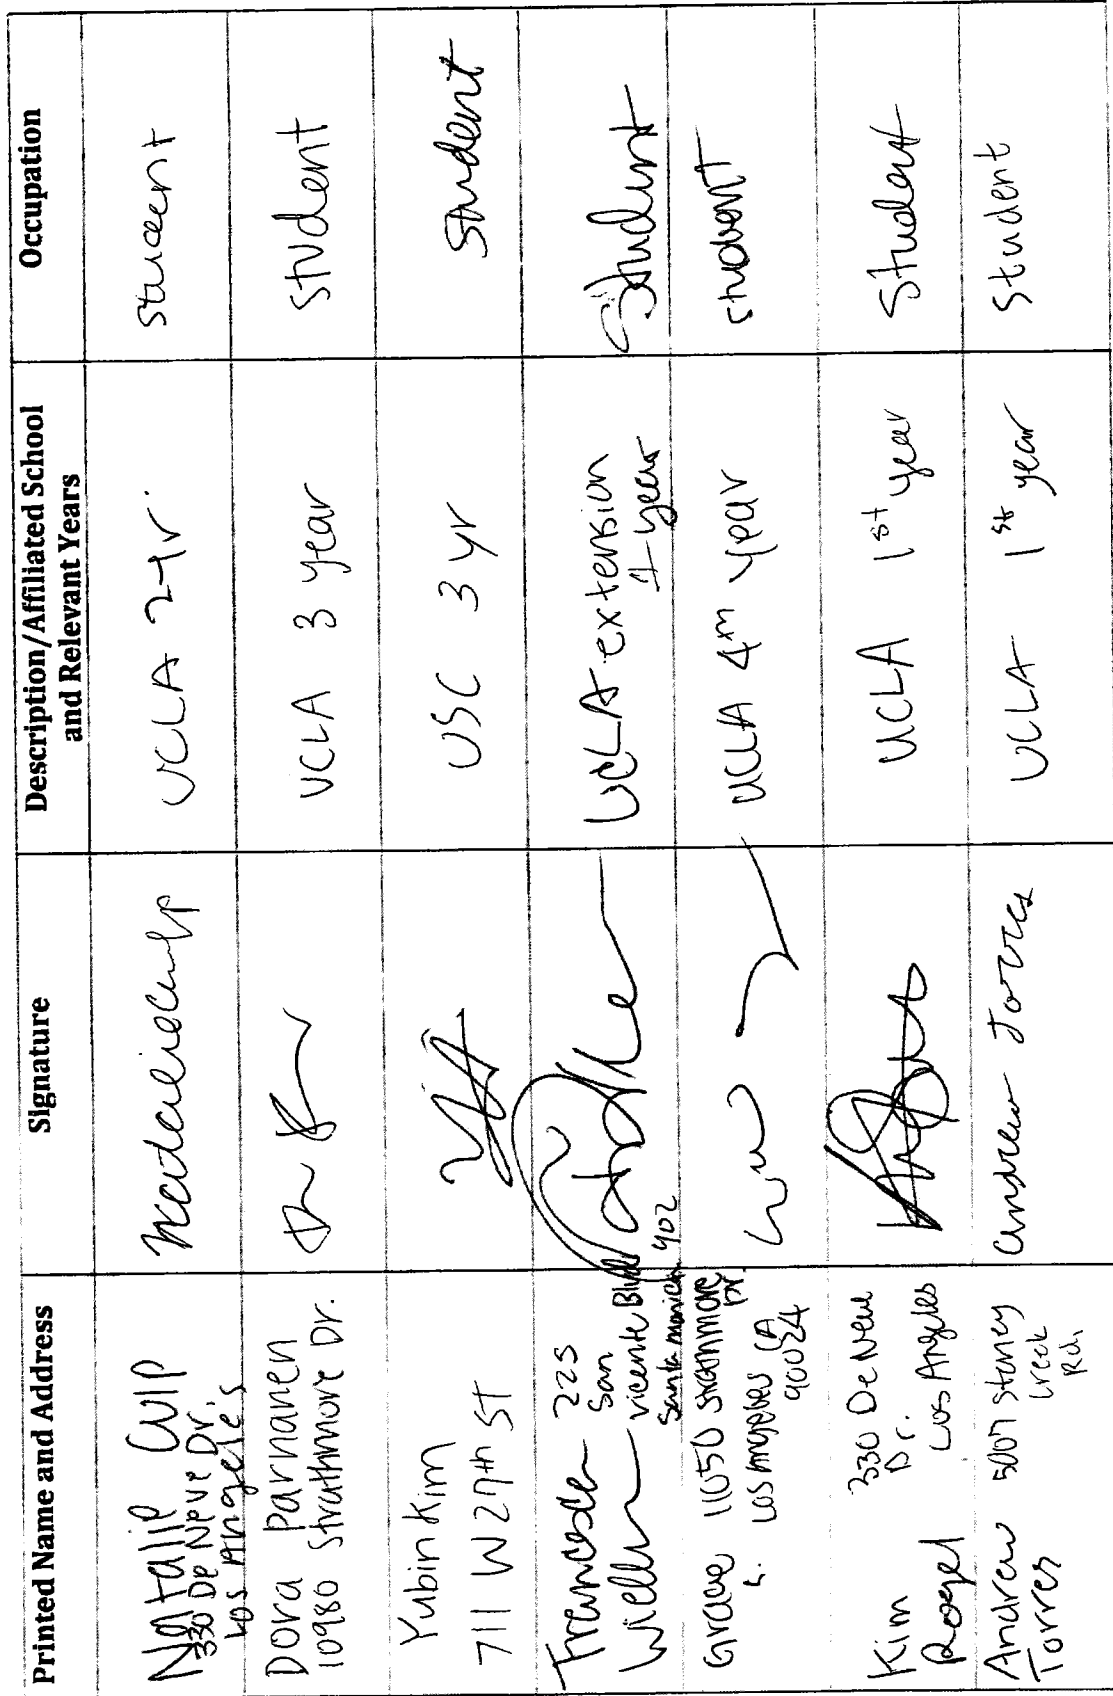 Printed Name and Address
Signature
Description/Affiliated School
and Relevant Years
Occupation
Natalie Culp
330 De Neve Dr.
Los Angeles
UCLA 2 yr.
Student
Dora Parnanen
10980 Strathmore Dr.
UCLA 3 year
student
Yubin Kim
711 W 27th St
USC 3 yr
Student
Francesca 225
San
vicente Blvd
Santa Monica 902
UCLA extension
1 year
Student
Grace 11050 Strathmore
Dr.
L. Los Angeles CA
90024
UCLA 4th year
student
Kim 330 De Neve
Dr.
Rogel Los Angeles
UCLA 1st year
Student
Andrew 5007 Stoney
Torres Creek
Rd.
Andrew Torres
UCLA 1st year
Student